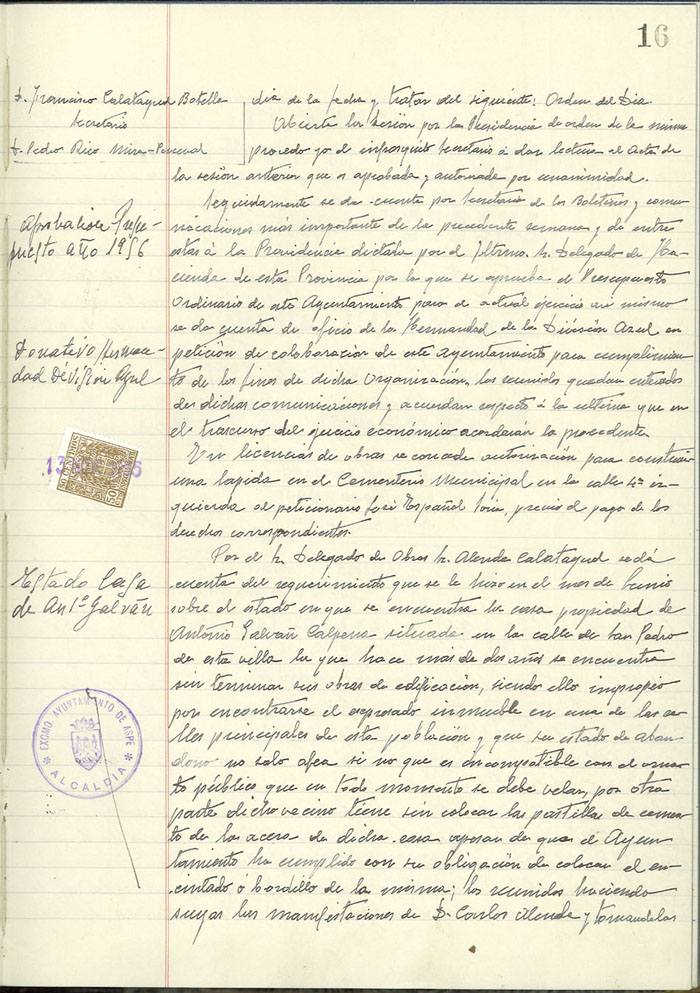 16
D. Francisco Calatayud Botella
Secretario
D. Pedro Rico Mira-Perceval
dia de la fecha y tratar del siguiente: Orden del Dia.
Abierta la sesión por la Presidencia de orden de la misma
procedo yo el infrascrito Secretario a dar lectura al Acta de
la sesión anterior que es aprobada y autorizada por unanimidad.
Aprobación Presu-
puesto año 1956
Seguidamente se da cuenta por Secretaría de los Boletines y comu-
nicaciones más importante de la precedente semana y de entre
estas á la Providencia dictada por el Iltmo. Sr. Delegado de Ha-
cienda de esta Provincia por la que se aprueba el Presupuesto
Ordinario de este Ayuntamiento para el actual ejercicio asi mismo
se da cuenta de oficio de la Hermandad de la División Azul en
Donativo Herman-
dad División Azul
petición de colaboración de este ayuntamiento para cumplimien-
to de los fines de dicha Organización, los reunidos quedan enterados
de dichas comunicaciones y acuerdan respecto á la última que en
el trascurso del ejercicio económico acordarán lo procedente.
13
50
En licencias de obras se concede autorización para construir
una lapida en el Cementerio Municipal en la calle 4ª iz-
quierda al peticionario José Español previo el pago de los
derechos correspondientes.
Estado Casa
de Antº Galván
Por el Sr. Delegado de Obras Sr. Alenda Calatayud se dá
cuenta del requerimiento que se le hizo en el mes de Junio
sobre el estado en que se encuentra la casa propiedad de
Antonio Galvañ Calpena situada en la calle de San Pedro
de esta villa la que hace más de dos años se encuentra
sin terminar sus obras de edificación, siendo ello impropio
por encontrarse el expresado inmueble en una de las ca-
lles principales de esta población y que su estado de aban-
dono no solo afea si no que es incompatible con el orna-
to público que en todo momento se debe velar, por otra
parte dicho vecino tiene sin colocar las pastillas de cemen-
to de la acera de dicha casa apesar de que el Ayun-
tamiento ha cumplido con su obligación de colocar el en-
cintado ó bordillo de la misma; los reunidos haciendo
suyas las manifestaciones de D. Carlos Alenda y tomandolas
EXCMO. AYUNTAMIENTO DE ASPE
ALCALDIA